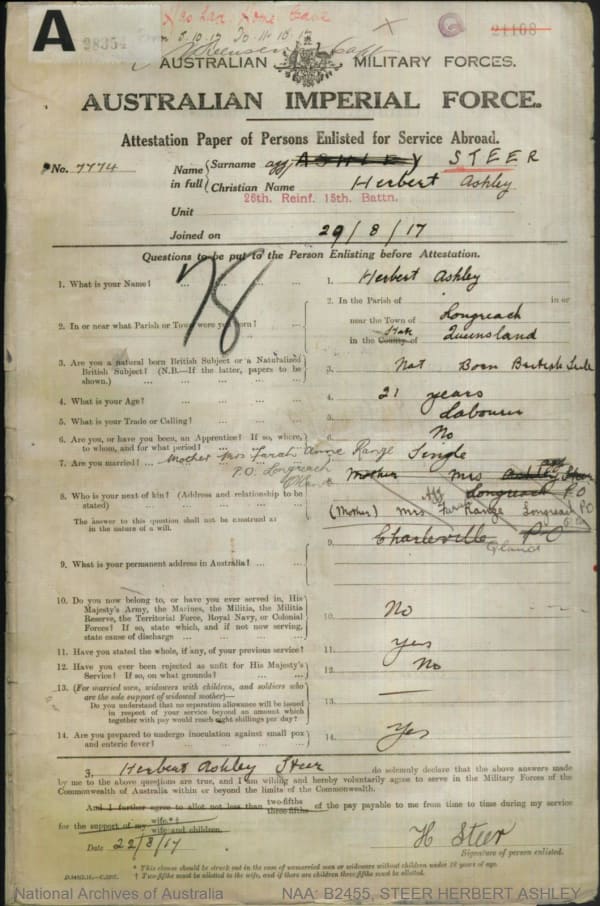 A
28354
21168
AUSTRALIAN MILITARY FORCES.
AUSTRALIAN IMPERIAL FORCE.
Attestation Paper of Persons Enlisted for Service Abroad.
No. 7774
Name in full
Surname ASHLEY STEER
Christian Name Herbert Ashley
26th. Reinf. 15th. Battn.
Unit
Joined on 29/8/17
Questions to be put to the Person Enlisting before Attestation.
78
1. What is your Name? ... 1. Herbert Ashley
2. In or near what Parish or Town were you born? ... 2. In the Parish of in or
near the Town of Longreach
in the County of State Queensland
3. Are you a natural born British Subject or a Naturalized
British Subject? (N.B.—If the latter, papers to be
shown.) 3. Nat Born British Sub
4. What is your Age? 4. 21 years
5. What is your Trade or Calling? 5. Labourer
6. Are you, or have you been, an Apprentice? If so, where,
to whom, and for what period? 6. No
7. Are you married? ... 7. Single
Mother Mrs Sarah Anne Range
P.O. Longreach
Qland
8. Who is your next of kin? (Address and relationship to be
stated) 8. Mother Mrs Ashley Steer
Longreach P.O
(Mother) Mrs Range Longreach PO
The answer to this question shall not be construed as
in the nature of a will.
9. What is your permanent address in Australia? ... 9. Charleville PO
Qland
10. Do you now belong to, or have you ever served in, His
Majesty's Army, the Marines, the Militia, the Militia
Reserve, the Territorial Force, Royal Navy, or Colonial
Forces? If so, state which, and if not now serving,
state cause of discharge ... 10. No
11. Have you stated the whole, if any, of your previous service? 11. Yes
12. Have you ever been rejected as unfit for His Majesty's
Service? If so, on what grounds? ... 12. No
13. (For married men, widowers with children, and soldiers who
are the sole support of widowed mother)—
Do you understand that no separation allowance will be issued
in respect of your service beyond an amount which
together with pay would reach eight shillings per day? 13. —
14. Are you prepared to undergo inoculation against small pox
and enteric fever? 14. Yes
I, Herbert Ashley Steer do solemnly declare that the above answers made
by me to the above questions are true, and I am willing and hereby voluntarily agree to serve in the Military Forces of the
Commonwealth of Australia within or beyond the limits of the Commonwealth.
And I further agree to allot not less than two-fifths three-fifths of the pay payable to me from time to time during my service
for the support of my wife.*†
wife and children.
Date 22/8/17
H Steer
Signature of person enlisted.
* This clause should be struck out in the case of unmarried men or widowers without children under 18 years of age.
† Two-fifths must be allotted to the wife, and if there are children three-fifths must be allotted.
National Archives of Australia NAA: B2455, STEER HERBERT ASHLEY